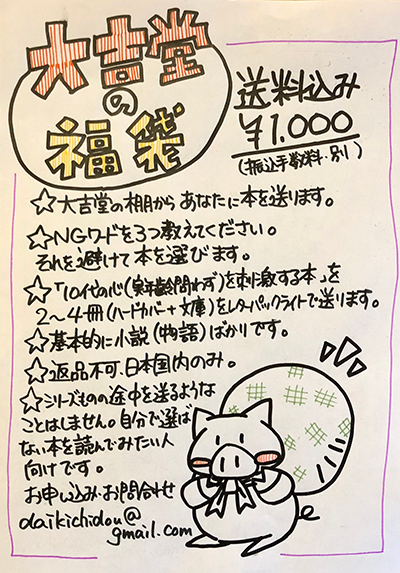 大吉堂
の
福袋
送料込み
¥1.000
(振込手数料・別)
☆大吉堂の棚からあなたに本を送ります。
☆NGワードを3つ教えてください。
それを避けて本を選びます。
☆「10代の心(実年齢問わず)を刺激する本」を
2〜4冊(ハードカバー+文庫)をレターパックライトで送ります。
☆基本的に小説(物語)ばかりです。
☆返品不可.日本国内のみ。
☆シリーズものの途中を送るような
ことはしません。自分で選ば
ない本を読んでみたい人
向けです。
お申し込み・お問合わせ
daikichidou@
gmail.com